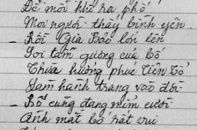 Để mỗi khi ra phố
Mọi người thấy bình yên.
- Rồi Gia Bảo lớn lên
Soi tấm gương của bố
Thừa hưởng phúc tiên tổ
Làm hành trang vào đời
- Bố cũng đang mỉm cười
Ánh mắt bố rất vui